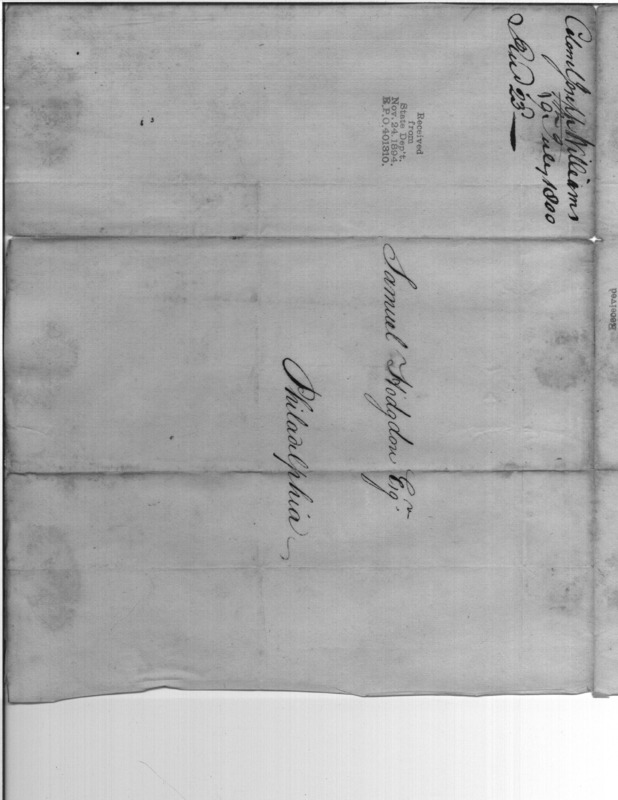 Colonel Joseph Williams
July 1800
23
Received
from
State Dep't,
Nov. 24, 1894.
R.P.O. 401310.
Samuel Hodgdon Esqr
Philadelphia
Received